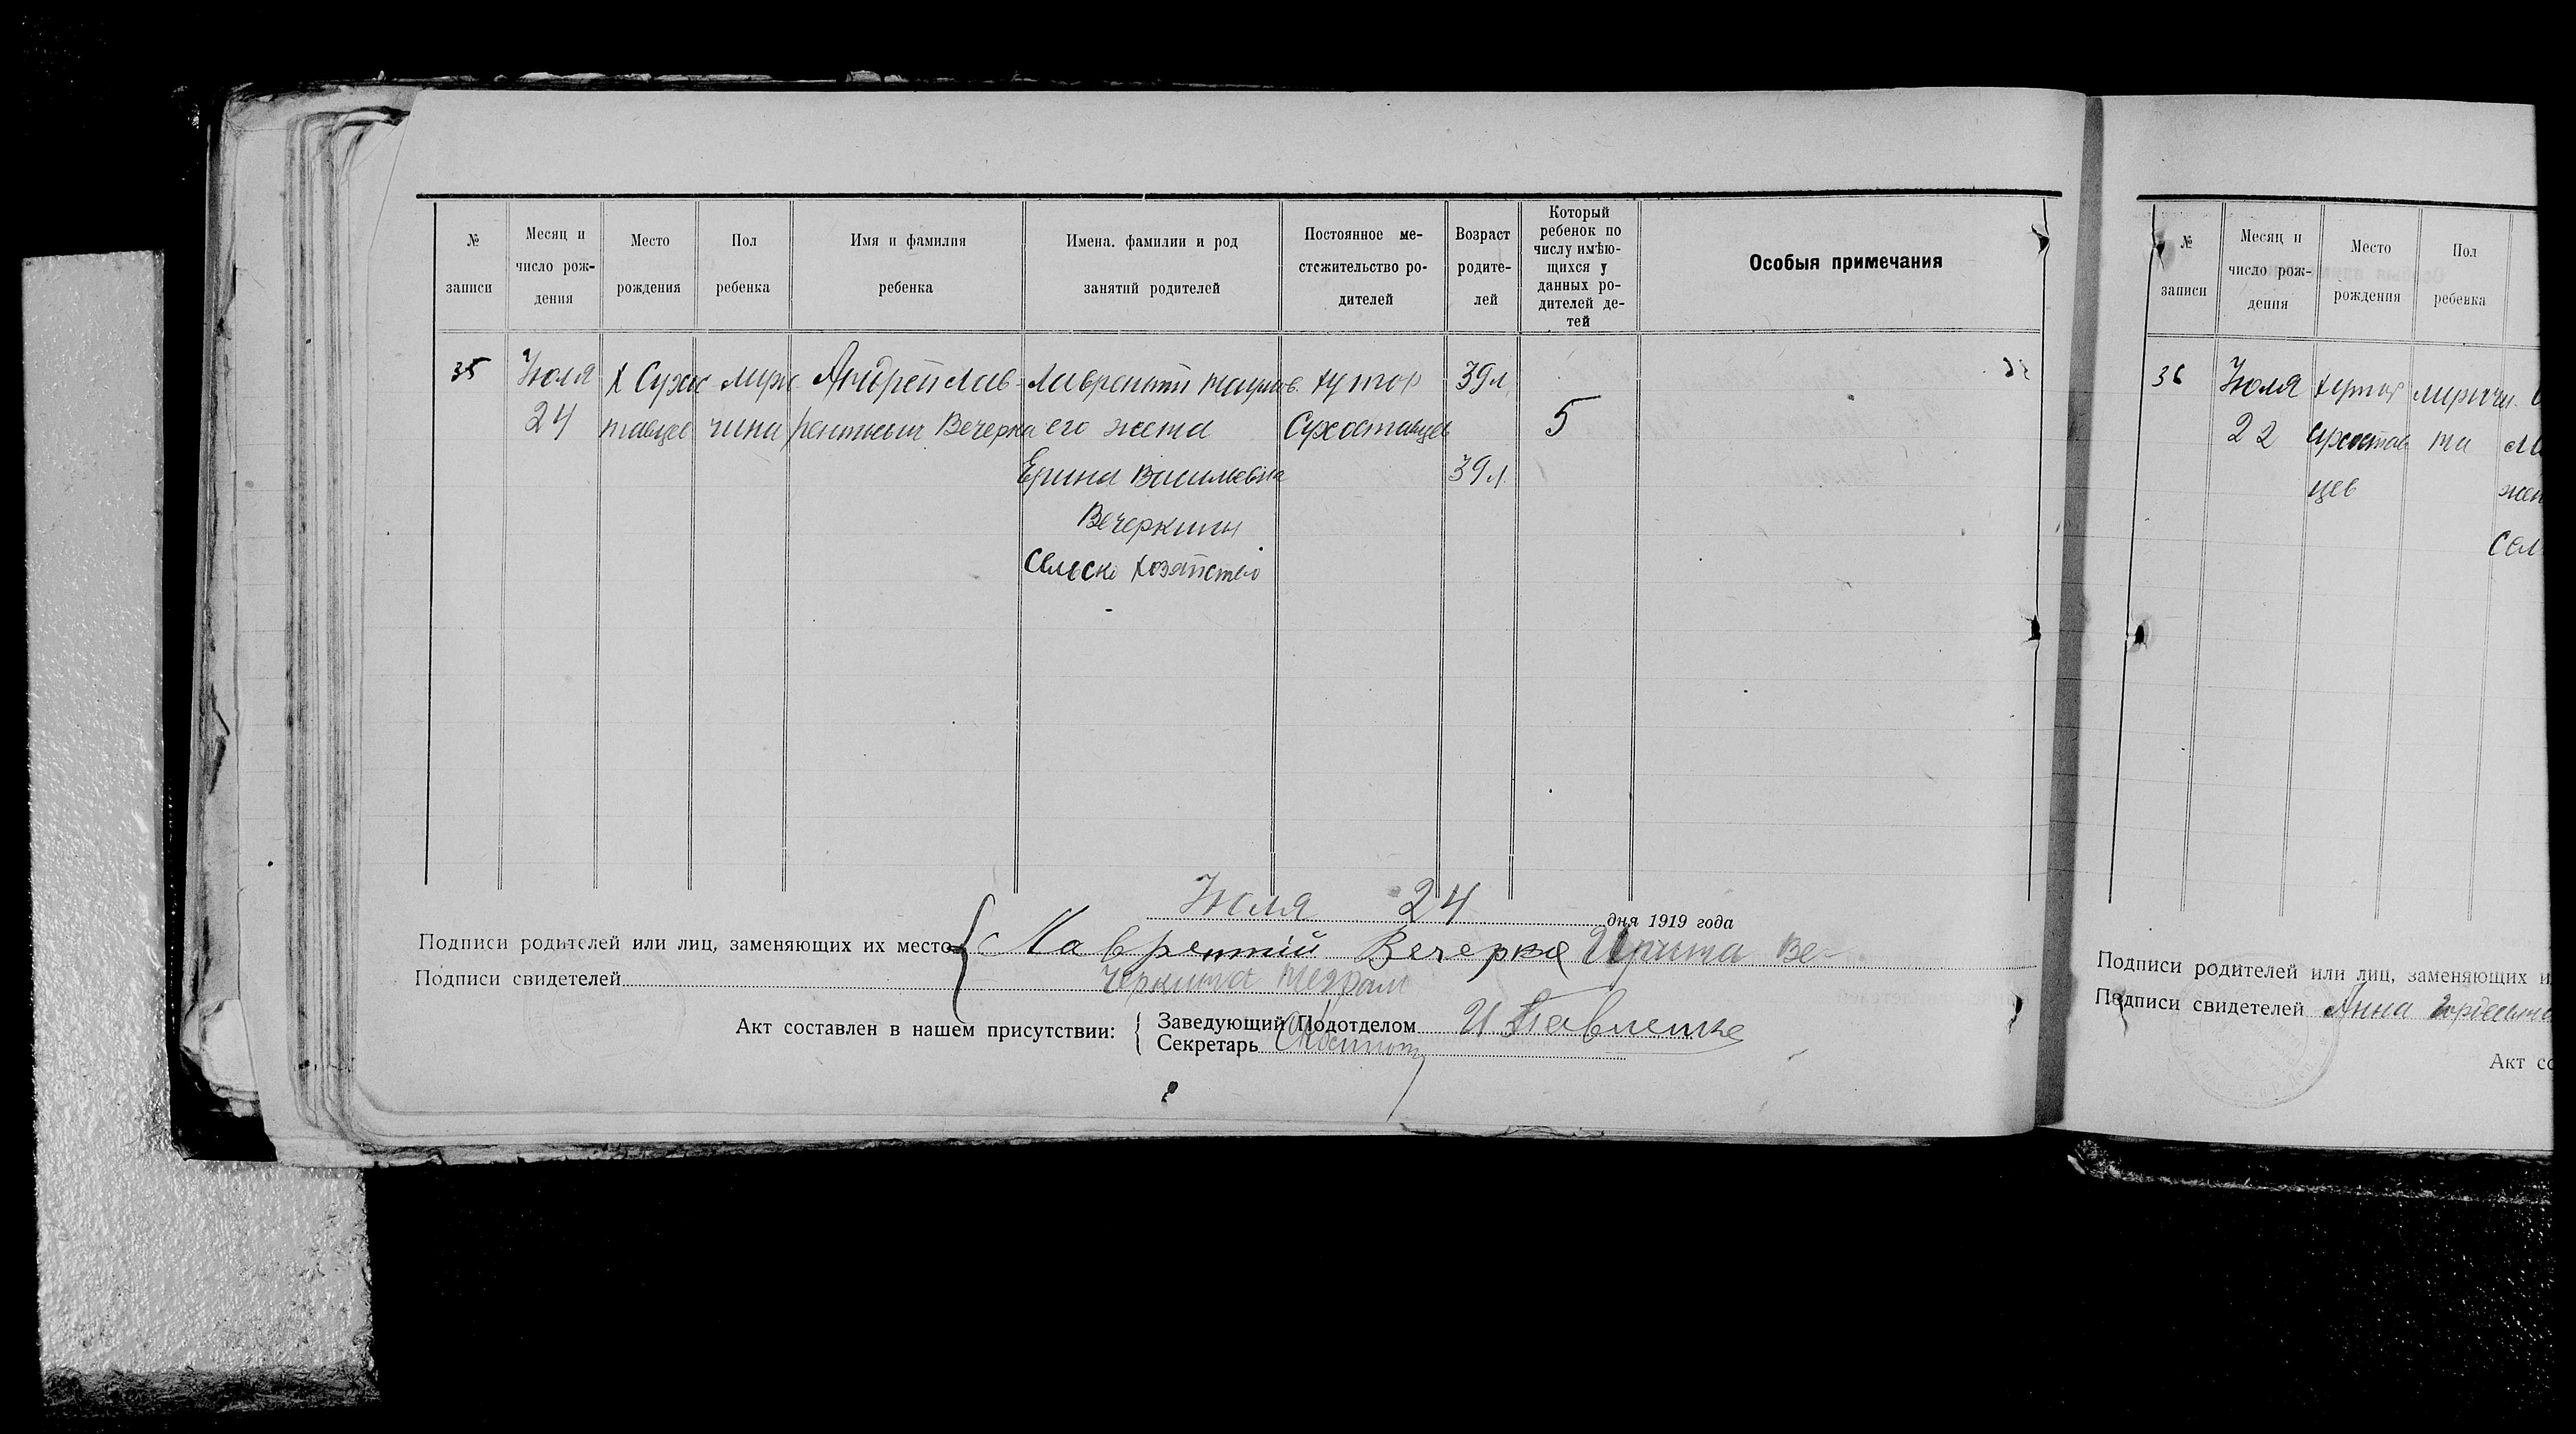 № записи
Месяц и число рождения
Место рождения
Пол ребенка
Имя и фамилия ребенка
Имена. фамилии и род занятий родителей
Постоянное местожительство родителей
Возраст родителей
Который ребенок по числу имѣющихся у данных родителей детей
Особыя примечания
35 Июля Х Сухос Андрей Лав- хутор 39 л
24 тавцев чина рентьевич Вечерка его жена Сухоставцев 5
Васильевна 39 л.
Вечеркины
Сельск хозяйство
Июля 24 дня 1919 года
Подписи родителей или лиц, заменяющих их место Лаврентий Вечерка Ирина Ве-
Подписи свидетелей черкина
Акт составлен в нашем присутствии:
Заведующий Подотделом И Павленко
Секретарь
№ записи
Месяц и число рождения
Место рождения
Пол ребенка
36 Июля Хутор
22 Сухостав
цев
Подписи родителей или лиц, заменяющих и
Подписи свидетелей Анна
Акт со